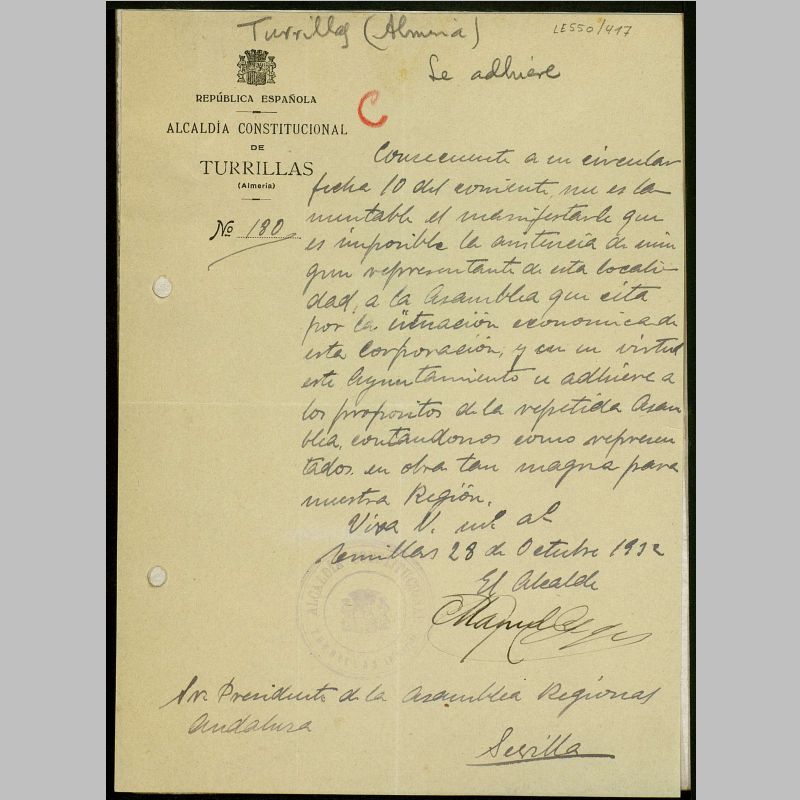 Turrillas (Almeria)
LE550/417
Se adhiere
REPÚBLICA ESPAÑOLA
C
ALCALDÍA CONSTITUCIONAL
DE
TURRILLAS
(Almería)
Nº 180
Consecuente a su circular
fecha 10 del corriente, me es la-
mentable el manifestarle que
es imposible la asistencia de nin
gun representante de esta locali-
dad, a la Asamblea que cita
por la situación economica de
esta Corporación, y en su virtud
este Ayuntamiento se adhiere a
los propositos de la repetida Asam
blea, contandonos como represen
tados en obra tan magna para
nuestra Región.
Viva V. mil as
Turrillas 28 de Octubre 1932
El Alcalde
Manuel
Sr. Presidente de la Asamblea Regional
Andaluza
Sevilla